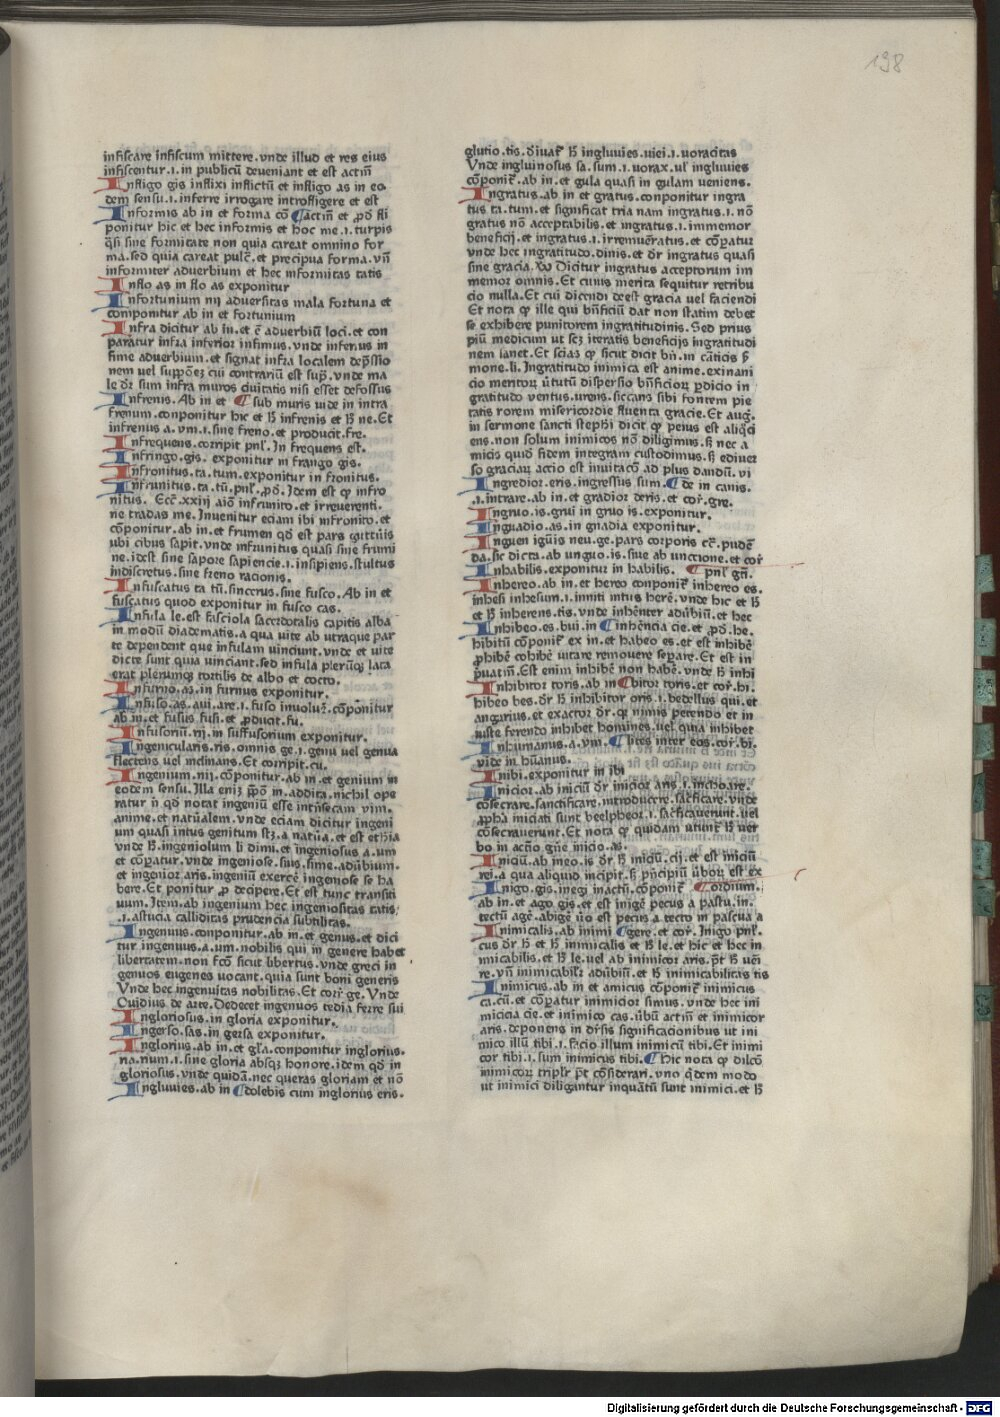 198
infiscare infiscum mittere.vnde illud et res eius
infiscentur.i.in publicũ deveniant et est actiũ
Infligo gis inflixi inflictũ et infligo as in eo
dem sensu.i.inferre irrogare introffigere et est
Informis ab in et forma cõ ¶ actiũ et ꝓd fli
ponitur hic et hec informis et hoc me.i.turpis
q̃si sine formitate non quia careat omnino for
ma.sed quia careat pulc̃.et precipua forma.vñ
informiter aduerbium et hec informitas tatis
Inflo as in flo as exponitur
Infortunium nij aduersitas mala fortuna et
componitur ab in et fortunium
Infra dicitur ab in.et ẽ aduerbiũ loci.et con
paratur infra inferior infimus.vnde inferius in
fime aduerbium.et signat infra localem dep̃ssio
nem vel suppõeꝫ cui contrariũ est sup̃.vnde ma
le dr̃ sum infra muros ciuitatis nisi esset defossus
Infrenis.Ab in et ¶ sub muris uide in intra
frenum.conponitur hic et ħ infrenis et ħ ne.Et
infrenus a.vm.i.sine freno.et producit.fre.
Infrequens.corripit pnł.In frequens est.
Infringo.gis. exponitur in frango gis.
Infronitus.ta.tum.exponitur in fronitus.
Infrunitus.ta.tũ.pnł.ꝓd.Idem est ꝙ infro
nitus. Ecc̃.xxiij aiõ infrunito.et irreuerenti.
ne tradas me.Inuenitur eciam ibi infronito.et
cõponitur.ab in.et frumen qd est pars gutturis
ubi cibus sapit.vnde infrunitus quasi sine frumi
ne.idest sine sapore sapiencie.i.insipiens.stultus
indiscretus.sine freno racionis.
Infuscatus ta tũ.sincerus.sine fusco.Ab in et
fuscatus quod exponitur in fusco cas.
Infula le.est fasciola sacerdotalis capitis alba
in modũ diadematis.a qua uite ab utraque par
te dependent que infulam vinciunt.vnde et uite
dicte sunt quia vinciant.sed infula plerũqꝫ lata
erat plerumqꝫ tortilis de albo et cocco.
Infurno.as.in furnus exponitur.
Infuso.as.aui.are.i.fuso inuoluĩ.cõponitur
ab in.et fusus fusi.et ꝓducit.fu.
Infusoriũ.rij.in suffusorium exponitur.
Ingenicularis.ris.omnis ge.i.genu vel genua
flectens vel inclinans.Et corripit.cu.
Ingenium.nij.cõponitur.ab in.et genium in
eodem sensu.Illa eniꝫ p̃põ in.addita.nichil ope
ratur ñ qd notat ingeniũ esse int̃nsecam vim.
anime.et nat̃alem.vnde eciam dicitur ingeni
um quasi intus genitum sꝫ.a natũa.et est et hĩa
vnde ħ.ingeniolum li dimi.et ingeniosus a.um
et cõpatur.vnde ingeniose.sius.sime.adũbium.
et ingenior aris.ingeniũ exercẽ ingeniose se ha
bere.Et ponitur ꝓ decipere.Et est tunc transiti
uum.Item.ab ingenium hec ingeniositas tatis
.i.astucia calliditas prudencia subtilitas.
Ingenuus.conponitur.ab in.et genus.et dici
tur ingenuus.a.um.nobilis qui in genere habet
libertatem.non fcõ sicut libertus.vnde greci in
genuos eugenes uocant.quia sunt boni generis
Vnde hec ingenuitas nobilitas.Et corr̃ ge.Vnde
Ouidius de arte.Dedecet ingenuos tedia ferre sui
Ingloriosus.in gloria exponitur.
Ingerso.sas.in gersa exponitur.
Inglorius.ab in.et gła.conponitur inglorius.
ria.rium.i.sine gloria absqꝫ honore.idem qd in
gloriosus.vnde quidã.nec queras gloriam et nõ
Ingluuies.ab in ¶ dolebis cum inglorius eris.
glutio.tis.ðiuat̃ ħ ingluuies.uiei.i.uoracitas
Vnde ingluuinosus sa.sum.i.uorax.uł ingluuies
cõponit̃.ab in.et gula quasi in gulam ueniens.
Ingratus.ab in et gratus.conponitur ingra
tus ta.tum.et significat tria nam ingratus.i.nõ
gratus nõ acceptabilis.et ingratus.i.immemor
beneficij.et ingratus.i.irremuẽratus.et cõpatur
vnde hec ingratitudo.dinis.et dr̃ ingratus quasi
sine gracia. Dicitur ingratus acceptorum im
memor omnis.Et cuius merita sequitur retribu
cio nulla.Et cui dicendi deest gracia uel faciendi
Et nota ꝙ ille qui bñficiũ dat non statim debet
se exhibere punitorem ingratitudinis.Sed prius
piũ medicum ut sꝫ iteratis beneficijs ingratitudi
nem sanet.Et scias ꝙ sicut dicit bñ.in cãticis ẜ
mone.li.Ingratitudo inimica est anime.exinani
cio meritoꝝ ũtutũ dispersio bñficioꝝ ꝑdicio in
gratitudo ventus.urens.siccans sibi fontem pie
tatis rorem misericordie fluenta gracie.Et aug.
in sermone sancti stephi dicit ꝙ peius est aliqd
ens.non solum inimicos nõ diligimus.ẜ nec a
micis quid fidem integram custodimus.ẜ ediuer
so graciaꝝ accio est inuitacõ ad plus dandũ.vi
Ingredior.eris.ingressus sum.¶ de in canis.
.i.intrare.ab in.et gradior deris.et corr̃.gre.
Ingruo.is.grui in gruo is.exponitur.
Inguadio.as.in guadia exponitur.
Inguen iguis neu.ge.pars corporis cc̃.pudẽ
da.sic dicta.ab unguo.is.siue ab unctione.et corr̃
Inhabilis.exponitur in habilis. ¶ pnł gñ.
Inhereo.ab in.et hereo conponit̃ inhereo es.
inhesi inhesum.i.inniti intus herẽ.vnde hic et ħ
et ħ inherens.tis.vnde inhẽnter adũbiũ.et hec
Inhibeo.es.bui.in ¶ inhẽncia cie.et ꝓd.he.
hibitũ cõponit̃ ex in.et habeo es.et est inhibẽ
ꝓhibẽ cohibẽ uitare remouere separe.Et est in
p̃uatiũ.Est enim inhibẽ non habẽ.vnde ħ inhi
Inhibitor toris.ab in ¶ bitor toris.et corr̃.bi.
hibeo bes.dr̃ ħ inhibitor oris.i.bedellus qui.et
angarius.et exactor dr̃.ꝙ nimis petendo et in
iuste ferendo inhibet homines.uel quia inhibet
Inhumanus.a.vm. ¶ lites inter eos.corr̃.bi.
vide in hũanus.
Inibi.exponitur in ibi
Inicior.ab iniciũ dr̃ inicior aris.i.inchoare.
cõsecrare.sanctificare.introducere.sacrificare.vnde
ꝓpħa iniciati sunt beelphegor.i.sacificauerunt.uel
cõsecrauerunt.Et nota ꝙ quidam utunt̃ ħ uer
bo in actio gñe inicio.as.
Iniciũ.ab ineo.is dr̃ ħ iniciũ.cij.et est iniciũ
rei.a qua aliquid incipit.ẜ p̃ncipiũ ũboꝝ est ex
Inigo.gis.inegi inactũ.cõponit̃ ¶ ordium.
ab in.et ago gis.et est inigẽ pecus a pastu.in.
tectũ agẽ.abigẽ ũo est pecus a tecto in pascua a
Inimicalis.ab inimi ¶ gere.et corr̃.Inigo pnł.
cus dr̃ ħ et ħ inimicalis et ħ le.et hic et hec in
imicabilis.et ħ le.uel ab inimicor aris.pt̃ ħ uẽi
re.vñ inimicabilĩ adũbiũ.et ħ inimicabilitas tis
Inimicus.ab in et amicus cõponit̃ inimicus
ca.cũ.et cõpatur inimicior simus.vnde hec ini
micicia cie.et inimico cas.ũbũ actiũ et inimicor
aris.deponens in dr̃sis significacionibus ut ini
mico illũ tibi.i.facio illum inimicũ tibi.Et inimi
cor tibi.i.sum inimicus tibi.¶ Hic nota ꝙ dilcõ
inimicoꝝ triplr̃ pt̃ cõsiderari.vno q̃dem modo
ut inimici diligantur inquãtũ sunt inimici.et ħ
Digitalisierung gefördert durch die Deutsche Forschungsgemeinschaft - DFG